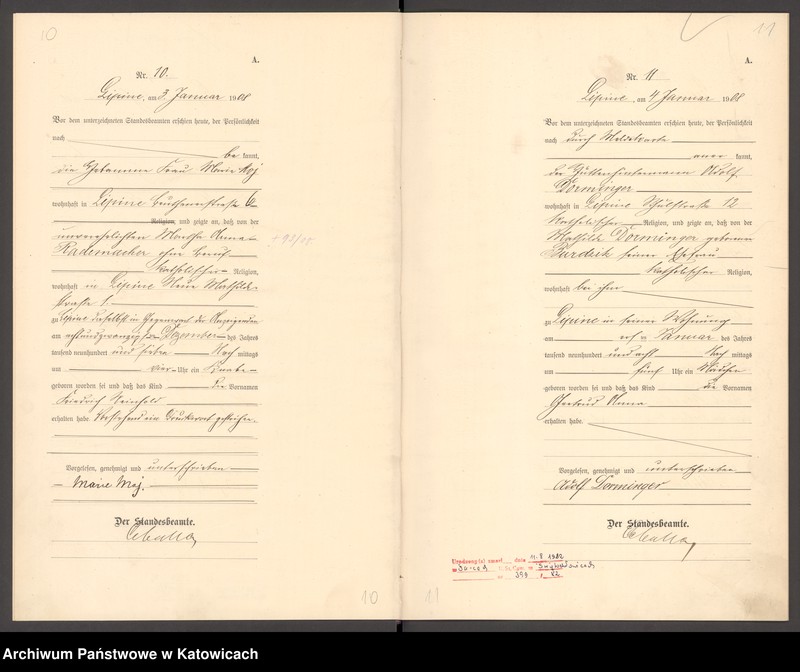 10
A.
Nr. 10.
Lipine, am 3. Januar 1908
Vor dem unterzeichneten Standesbeamten erschien heute, der Persönlichkeit
nach
be kannt,
die Hebamme Frau Marie Moj
wohnhaft in Lipine Beuthenerstraße
Religion, und zeigte an, daß von der
unverehelichten Martha Anna
Rademacher ohne Beruf
Katholischer Religion,
wohnhaft in Lipine Neue Mathilde
straße 1.
zu Lipine daselbst in Gegenwart der Anzeigenden
am achtundzwanzigsten Dezember des Jahres
tausend neunhundert und sieben Nach mittags
um vier Uhr ein Knabe
geboren worden sei und daß das Kind die Vornamen
Friedrich Reinhold
erhalten habe. Vorstehend ein Druckwort gestrichen.
Vorgelesen, genehmigt und unterschrieben
Marie Moj.
Der Standesbeamte.
10
11
A.
Nr. 11
Lipine, am 4. Januar 1908
Vor dem unterzeichneten Standesbeamten erschien heute, der Persönlichkeit
nach durch Meldekarte
aner kannt,
der Zinkhüttenmann Adolf
Dorminger
wohnhaft in Lipine Schulstraße 12
Katholischer Religion, und zeigte an, daß von der
Mathilde Dorminger geborenen
seiner Ehefrau
Katholischer Religion,
wohnhaft bei ihm
zu Lipine in seiner Wohnung
am Januar des Jahres
tausend neunhundert und acht Nach mittags
um fünf Uhr ein Mädchen
geboren worden sei und daß das Kind die Vornamen
Gertrud Anna
erhalten habe.
Vorgelesen, genehmigt und unterschrieben
Adolf Dorminger
Der Standesbeamte.
11
Archiwum Państwowe w Katowicach